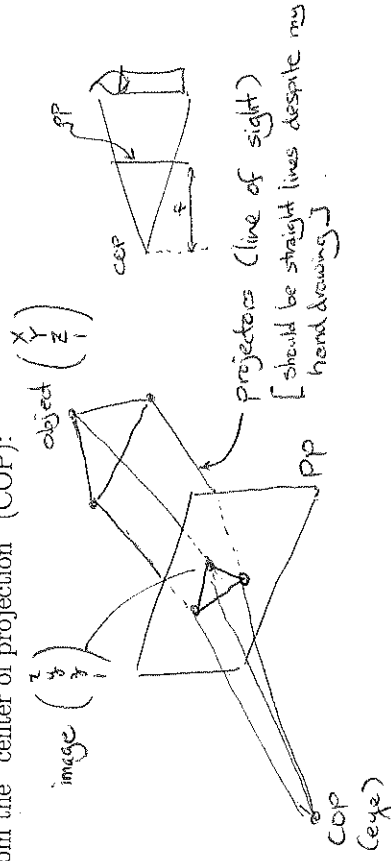 om the center of projection (COP):
image
x
y
z
1
object
X
Y
Z
1
PP
COP
f
projectors (line of sight)
[should be straight lines despite my
hand drawing]
PP
COP
(eye)